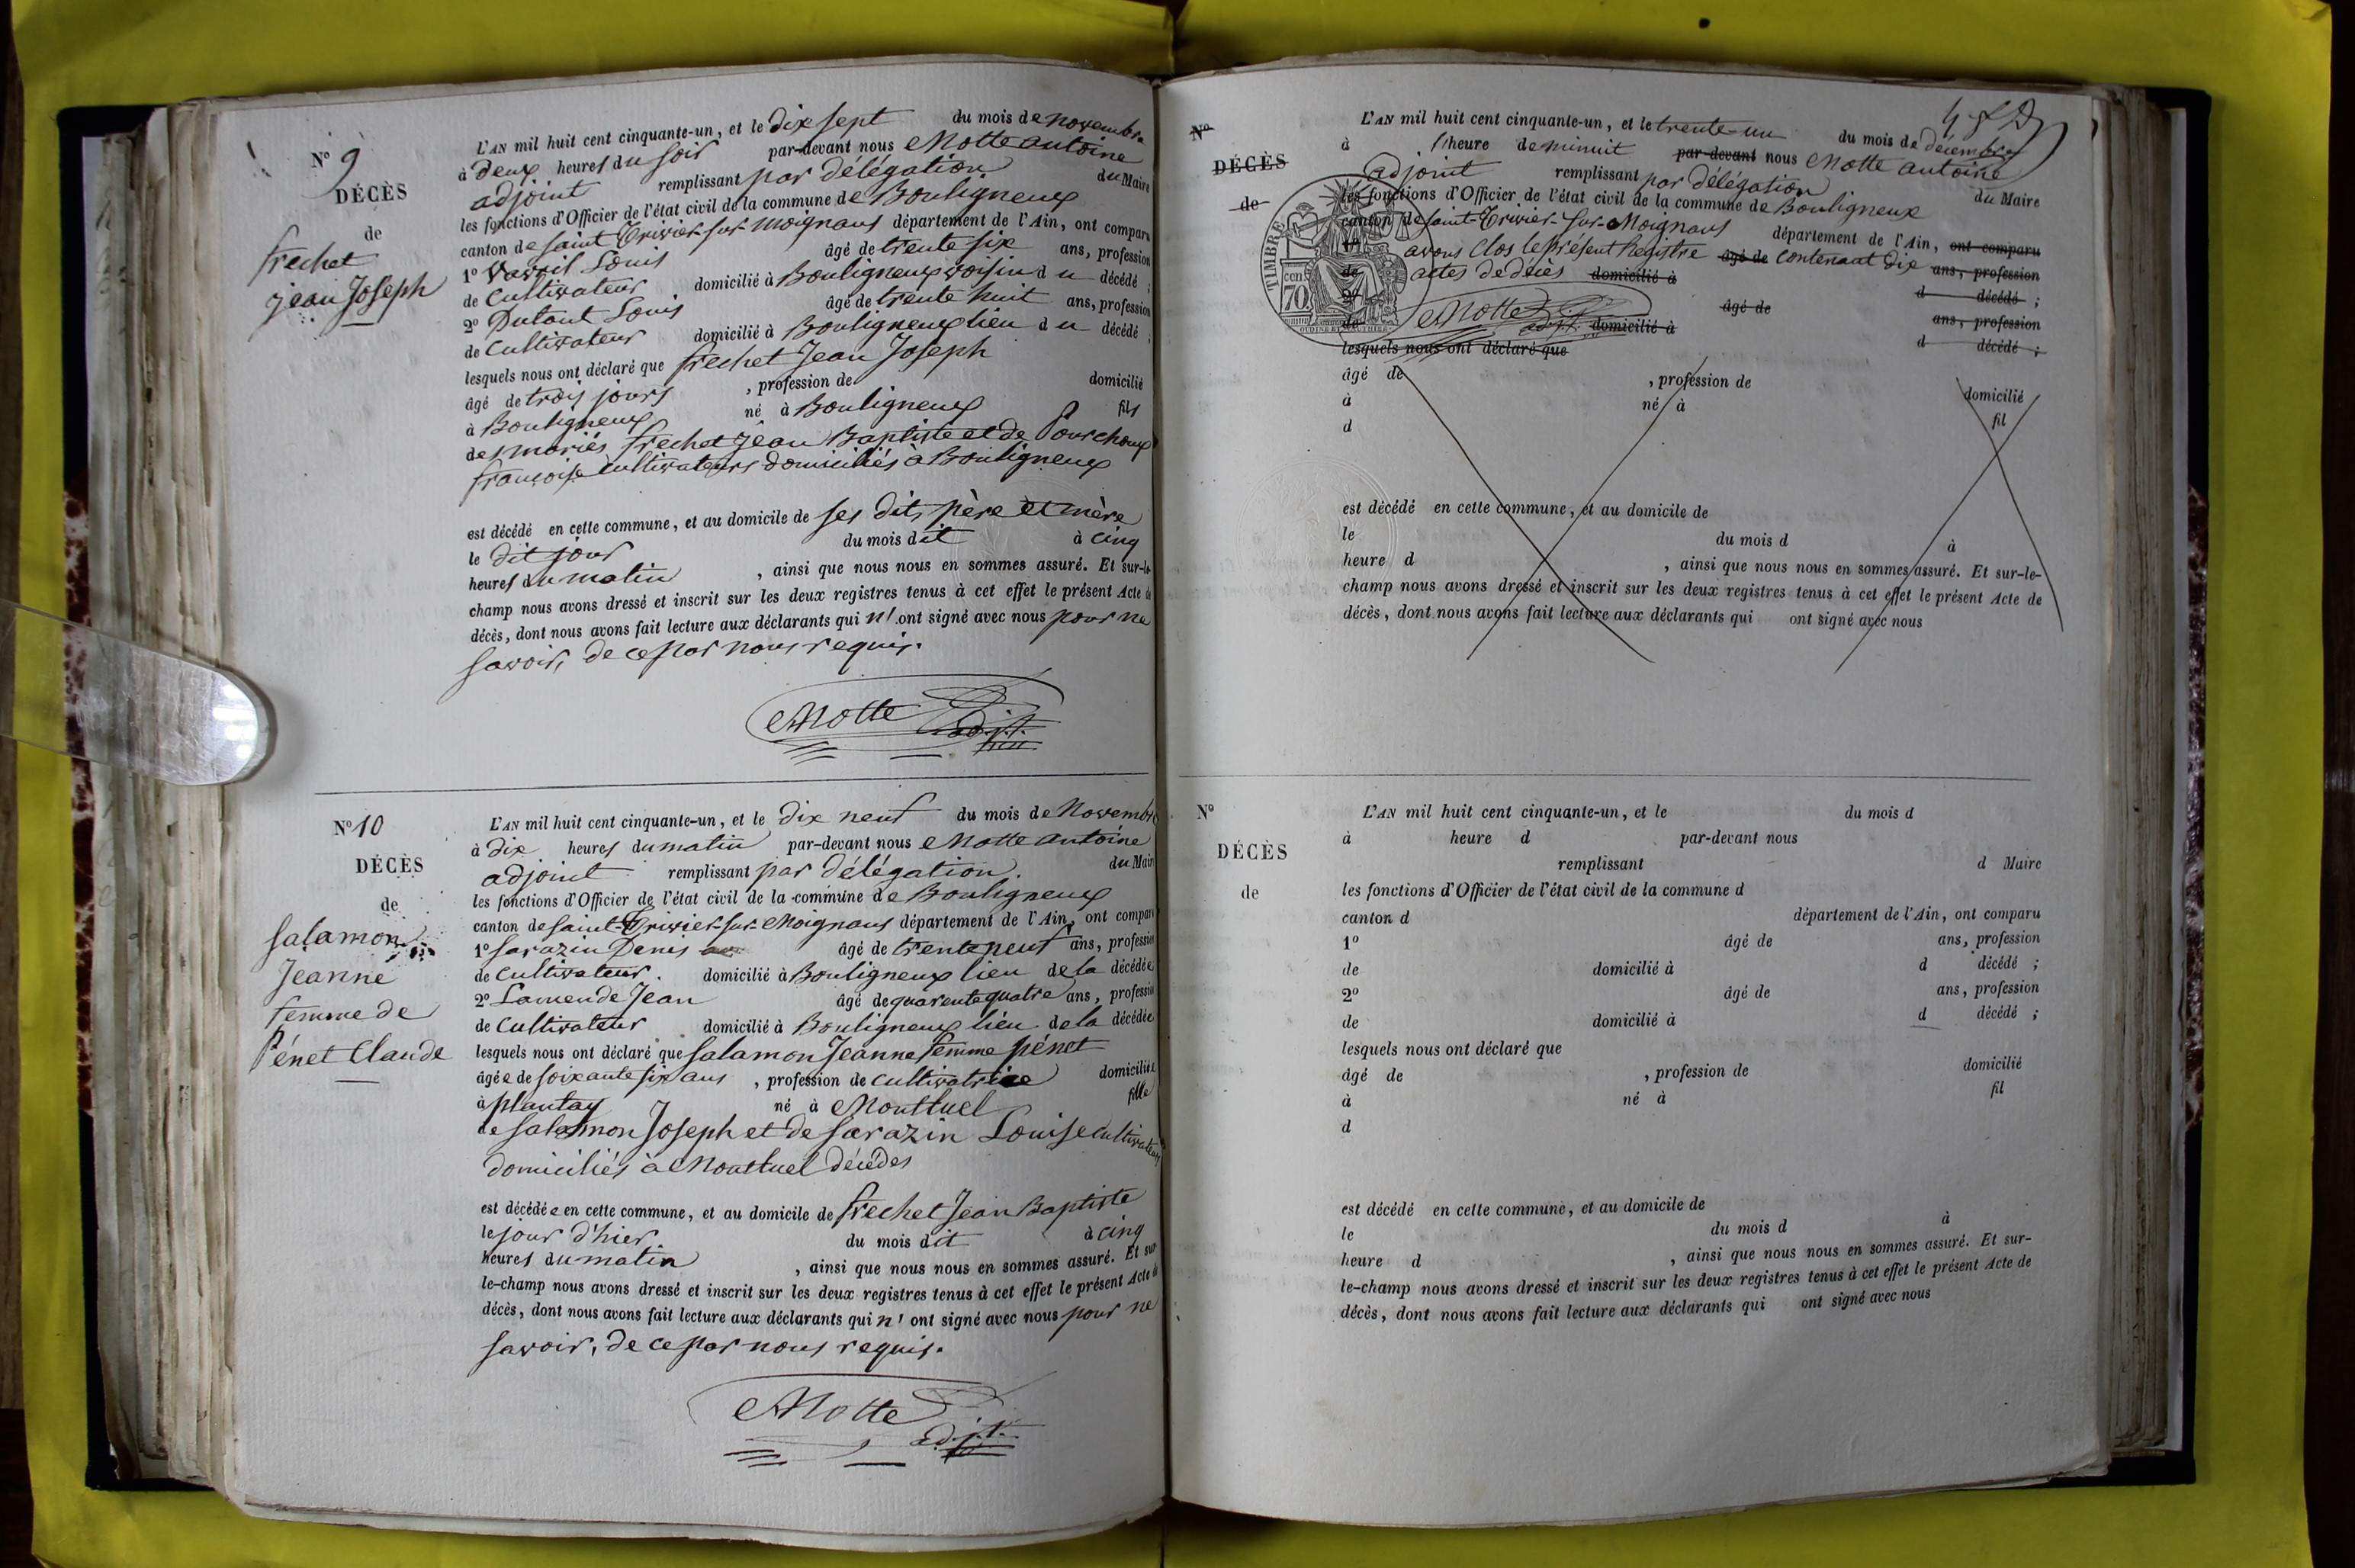 N° 9
DÉCÈS
de
frechet
jean Joseph
L'AN mil huit cent cinquante-un, et le dix sept du mois de novembre
à deux heures du soir par-devant nous Motte antoine
adjoint remplissant par délégation du Maire
les fonctions d'Officier de l'état civil de la commune de Bouligneux
canton de saint Trivier sur moignans département de l'Ain, ont comparu
1° Louis âgé de trente six ans, profession
de Cultivateur domicilié à Bouligneux voisin du décédé ;
2° Dutant Louis âgé de trente huit ans, profession
de Cultivateur domicilié à Bouligneux lieu du décédé ;
lesquels nous ont déclaré que frechet Jean Joseph
âgé de trois jours , profession de domicilié
à Bouligneux né à Bouligneux fils
des mariés frechet Jean Baptiste et de Pourchoux
françoise Cultivateurs domiciliés à Bouligneux
est décédé en cette commune, et au domicile de ses dits père et mère
le dit jour du mois dit à cinq
heures du matin , ainsi que nous nous en sommes assuré. Et sur-le-
champ nous avons dressé et inscrit sur les deux registres tenus à cet effet le présent Acte de
décès, dont nous avons fait lecture aux déclarants qui n' ont signé avec nous pour ne
savoir, de ce par nous requis.
Motte adjt.
N° 10
DÉCÈS
de
Salamon
Jeanne
femme de
Pénet Claude
L'AN mil huit cent cinquante-un, et le dix neuf du mois de Novembre
à dix heures du matin par-devant nous Motte antoine
adjoint remplissant par délégation. du Maire
les fonctions d'Officier de l'état civil de la commune de Bouligneux
canton de saint-Trivier-sur-Moignans département de l'Ain, ont comparu
1° Sarazin Denis âgé de trente neuf ans, profession
de Cultivateur. domicilié à Bouligneux lieu de la décédée
2° Lamende Jean âgé de quarente quatre ans, profession
de Cultivateur domicilié à Bouligneux lieu de la décédée
lesquels nous ont déclaré que Salamon Jeanne femme pénet
âgée de soixante six ans , profession de cultivatrice domiciliée
à plantay né à Montluel fille
de Salamon Joseph et de Sarazin Louise cultivateurs
domiciliés à Montluel décédés
est décédée en cette commune, et au domicile de frechet Jean Baptiste
le jour d'hier du mois dit à cinq
heures du matin , ainsi que nous nous en sommes assuré. Et sur
le-champ nous avons dressé et inscrit sur les deux registres tenus à cet effet le présent Acte de
décès, dont nous avons fait lecture aux déclarants qui n' ont signé avec nous pour ne
savoir, de ce par nous requis.
Motte
adjt.
N°
DÉCÈS
de
TIMBRE
cen 70
L'AN mil huit cent cinquante-un, et le trente-un du mois de décembre
à l'heure de minuit par-devant nous Motte antoine
adjoint remplissant par délégation du Maire
les fonctions d'Officier de l'état civil de la commune de Bouligneux
canton de saint-Trivier-sur-Moignans département de l'Ain, ont comparu
1° avons Clos le présent Registre âgé de contenant dix ans, profession
de actes de décès domicilié à d décédé ;
2° Motte adjt. âgé de ans, profession
de domicilié à d décédé ;
lesquels nous ont déclaré que
âgé de , profession de domicilié
à né à fil
d
est décédé en cette commune, et au domicile de
le du mois d à
heure d , ainsi que nous nous en sommes assuré. Et sur-le-
champ nous avons dressé et inscrit sur les deux registres tenus à cet effet le présent Acte de
décès, dont nous avons fait lecture aux déclarants qui ont signé avec nous
N°
DÉCÈS
de
L'AN mil huit cent cinquante-un, et le du mois d
à heure d par-devant nous
remplissant d Maire
les fonctions d'Officier de l'état civil de la commune d
canton d département de l'Ain, ont comparu
1° âgé de ans, profession
de domicilié à d décédé ;
2° âgé de ans, profession
de domicilié à d décédé ;
lesquels nous ont déclaré que
âgé de , profession de domicilié
à né à fil
d
est décédé en cette commune, et au domicile de
le du mois d à
heure d , ainsi que nous nous en sommes assuré. Et sur-
le-champ nous avons dressé et inscrit sur les deux registres tenus à cet effet le présent Acte de
décès, dont nous avons fait lecture aux déclarants qui ont signé avec nous